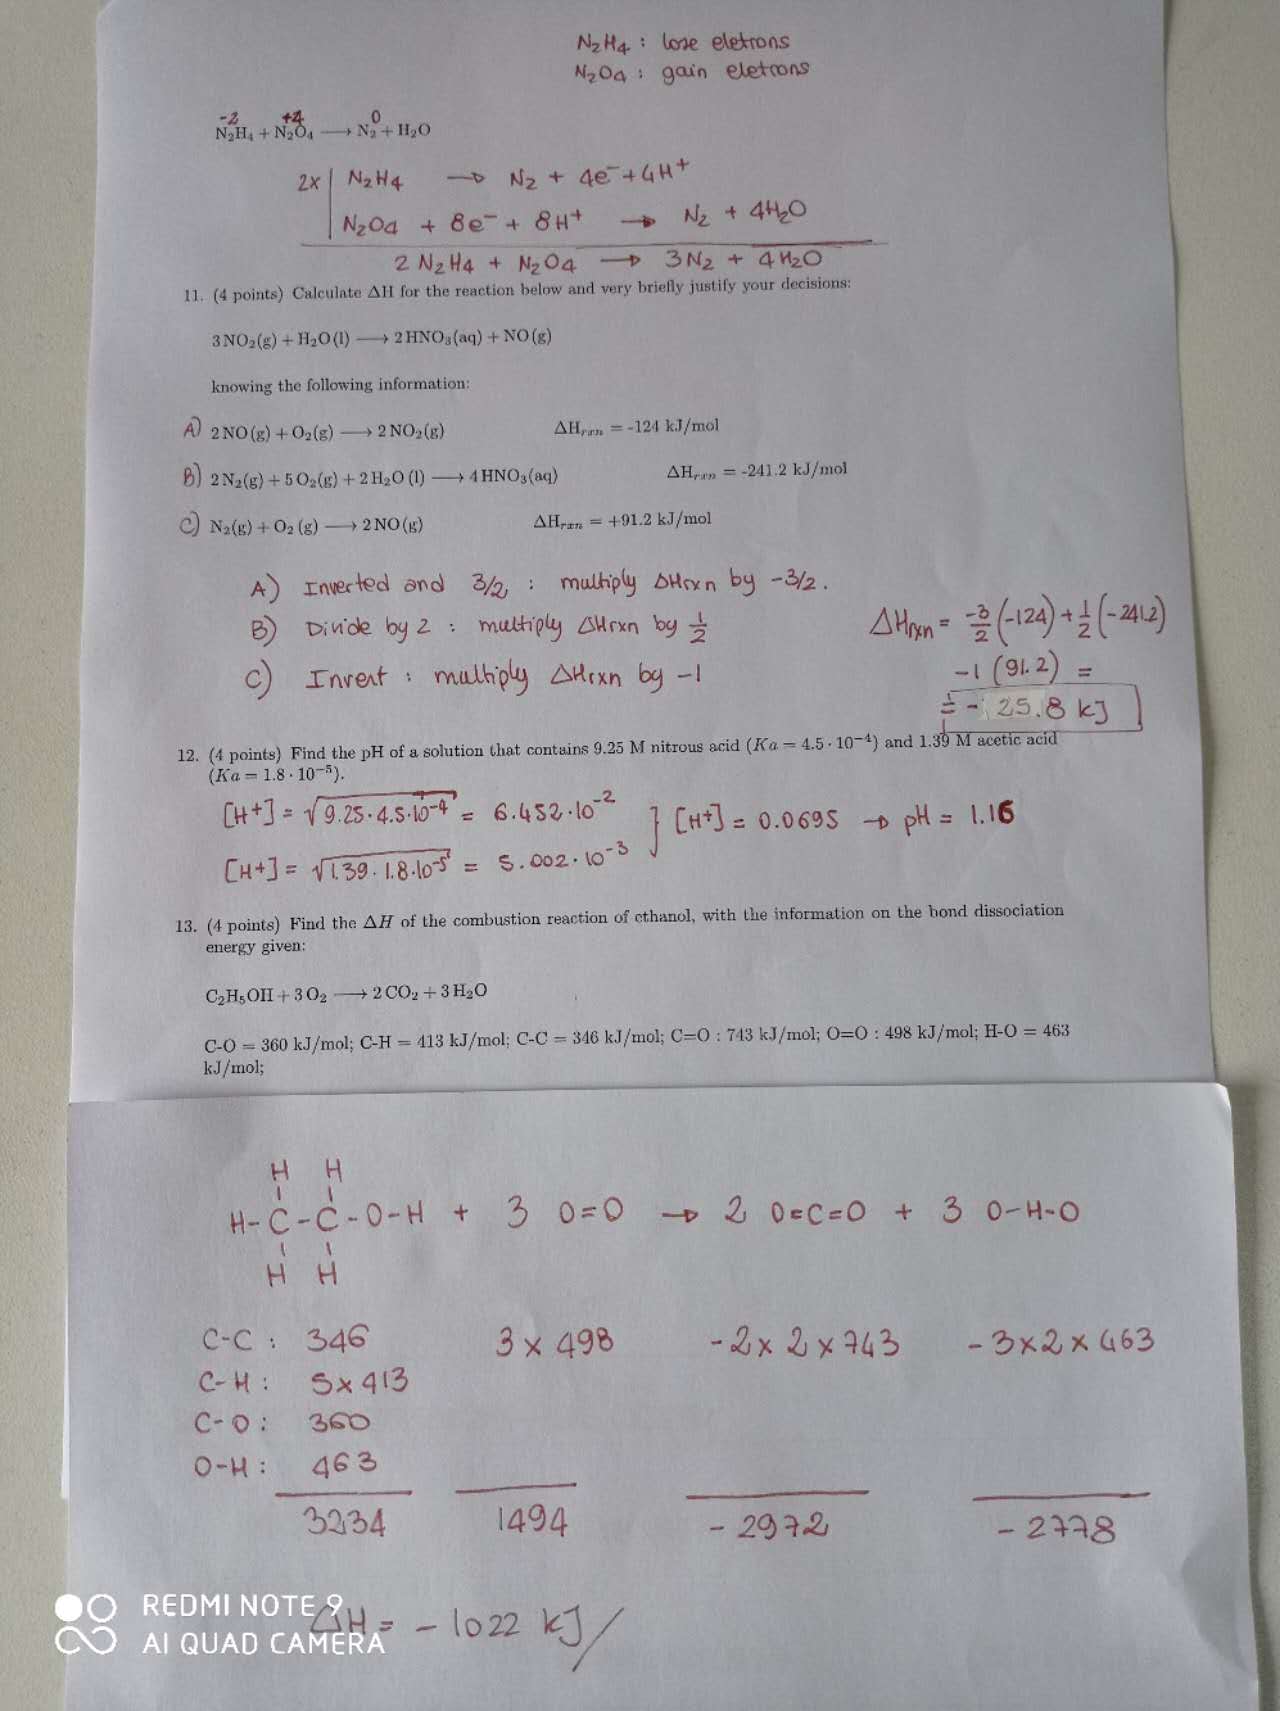 N₂H₄ : lose eletrons
N₂O₄ : gain eletrons
-2 +4 0
N₂H₄ + N₂O₄ ⟶ N₂ + H₂O
2x | N₂H₄ → N₂ + 4e⁻ + 4H⁺
N₂O₄ + 8e⁻ + 8H⁺ → N₂ + 4H₂O
2 N₂H₄ + N₂O₄ → 3N₂ + 4H₂O
11. (4 points) Calculate ΔH for the reaction below and very briefly justify your decisions:
3 NO₂(g) + H₂O(l) ⟶ 2 HNO₃(aq) + NO(g)
knowing the following information:
A) 2 NO(g) + O₂(g) ⟶ 2 NO₂(g) ΔHᵣₓₙ = -124 kJ/mol
B) 2 N₂(g) + 5 O₂(g) + 2 H₂O (l) ⟶ 4 HNO₃(aq) ΔHᵣₓₙ = -241.2 kJ/mol
C) N₂(g) + O₂ (g) ⟶ 2 NO(g) ΔHᵣₓₙ = +91.2 kJ/mol
A) Inverted and 3/2 : multiply ΔHrxn by -3/2.
B) Divide by 2 : multiply ΔHrxn by 1/2
C) Invert : multiply ΔHrxn by -1
ΔHrxn = -3/2 (-124) + 1/2 (-241.2)
-1 (91.2) =
= - 25.8 kJ
12. (4 points) Find the pH of a solution that contains 9.25 M nitrous acid (Ka = 4.5 · 10⁻⁴) and 1.39 M acetic acid
(Ka = 1.8 · 10⁻⁵).
[H+] = √9.25·4.5·10⁻⁴ = 6.452·10⁻² } [H+] = 0.0695 → pH = 1.16
[H+] = √1.39·1.8·10⁻⁵ = 5.002·10⁻³
13. (4 points) Find the ΔH of the combustion reaction of ethanol, with the information on the bond dissociation
energy given:
C₂H₅OH + 3 O₂ ⟶ 2 CO₂ + 3 H₂O
C-O = 360 kJ/mol; C-H = 413 kJ/mol; C-C = 346 kJ/mol; C=O : 743 kJ/mol; O=O : 498 kJ/mol; H-O = 463
kJ/mol;
H H
H-C-C-O-H + 3 O=O → 2 O=C=O + 3 O-H-O
H H
C-C : 346 3 x 498 -2 x 2 x 743 - 3x2 x 463
C-H : 5x 413
C-O : 360
O-H : 463
3234 1494 - 2972 - 2778
ΔH = - 1022 kJ/
REDMI NOTE 9
AI QUAD CAMERA